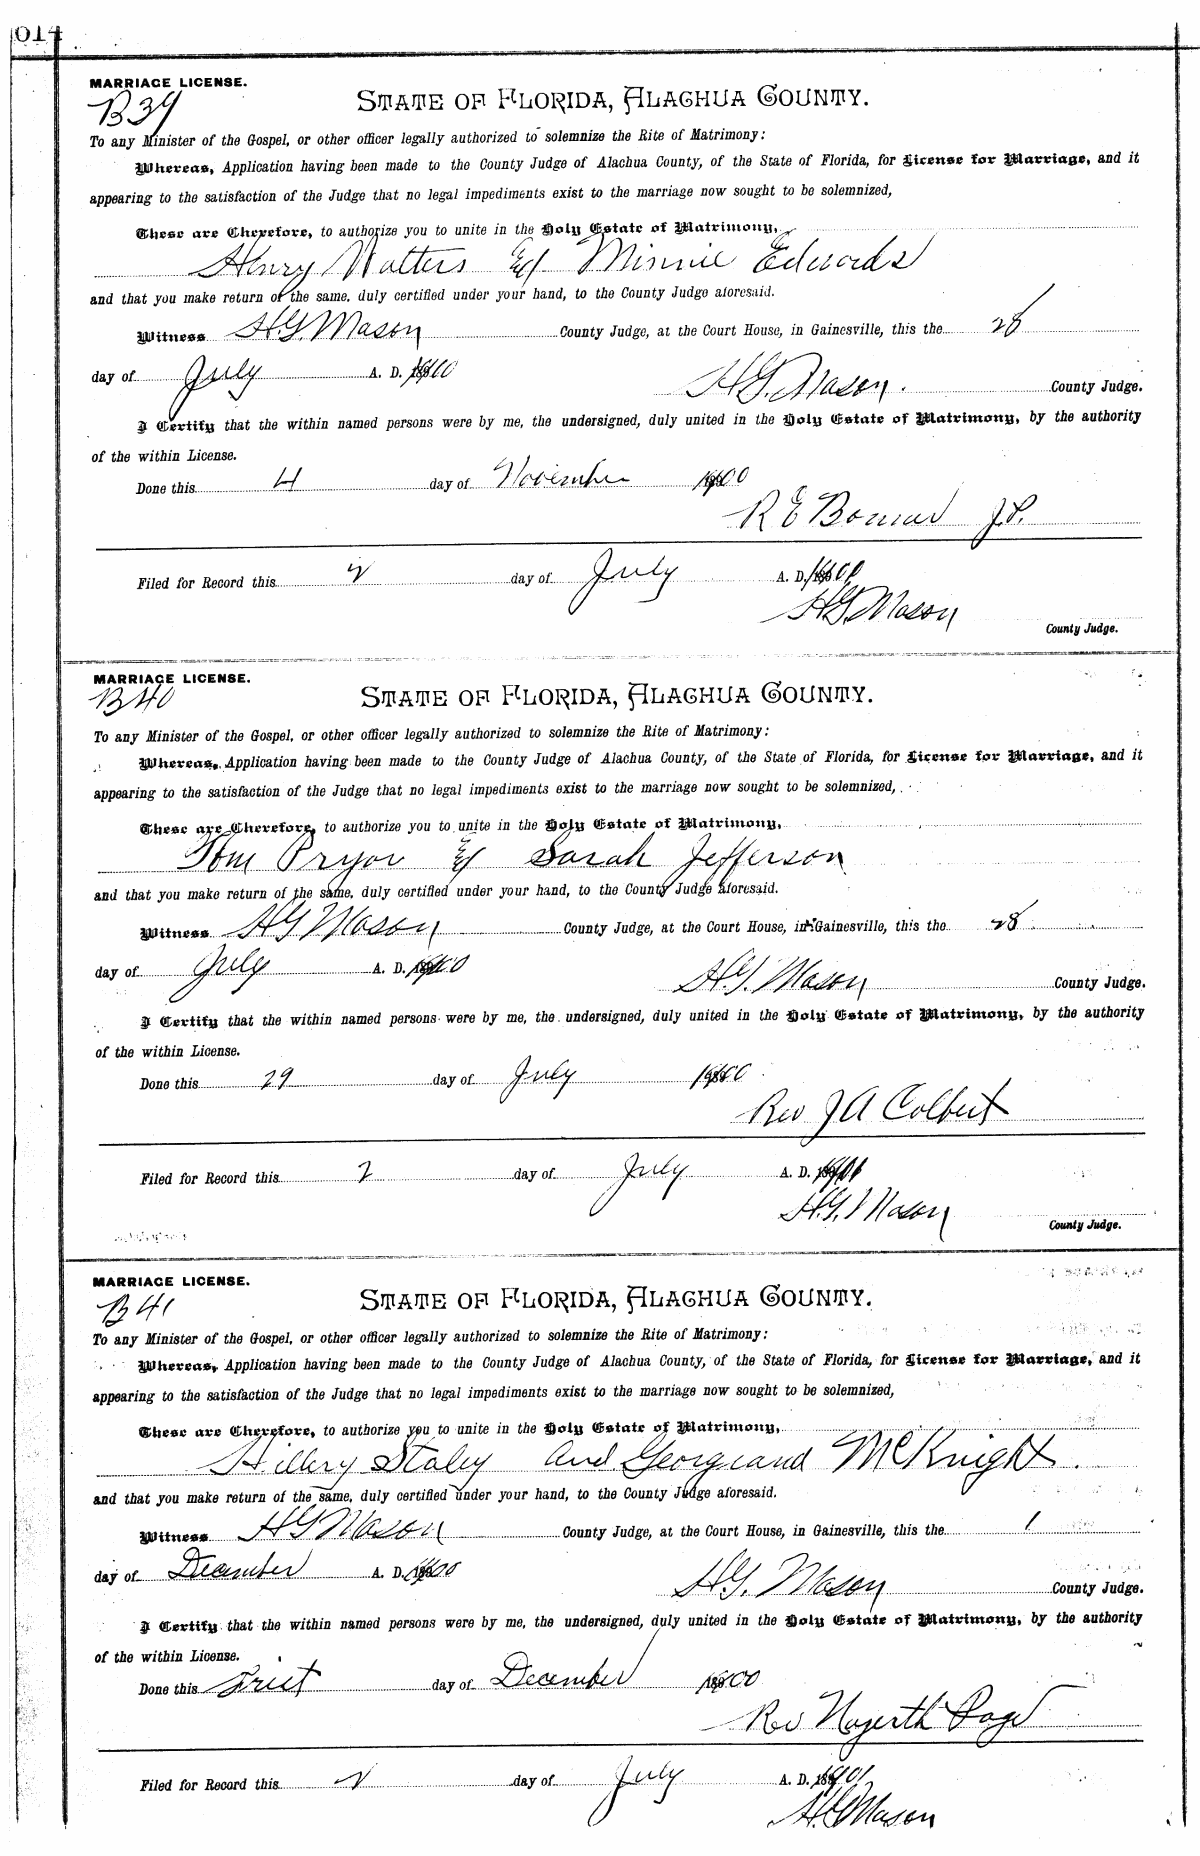 614
MARRIAGE LICENSE.
B39
STATE OF FLORIDA, ALACHUA COUNTY.
To any Minister of the Gospel, or other officer legally authorized to solemnize the Rite of Matrimony:
Whereas, Application having been made to the County Judge of Alachua County, of the State of Florida, for License for Marriage, and it
appearing to the satisfaction of the Judge that no legal impediments exist to the marriage now sought to be solemnized,
These are Therefore, to authorize you to unite in the Holy Estate of Matrimony,
Henry Walters & Minnie Edwards
and that you make return of the same, duly certified under your hand, to the County Judge aforesaid.
Witness H.G. Mason County Judge, at the Court House, in Gainesville, this the 28
day of July A. D. 1900
H.G. Mason. County Judge.
I Certify that the within named persons were by me, the undersigned, duly united in the Holy Estate of Matrimony, by the authority
of the within License.
Done this 4 day of November 1900
R E Bomar J.P.
Filed for Record this 2 day of July A. D. 1901
H.G. Mason
County Judge.
MARRIAGE LICENSE.
B40
STATE OF FLORIDA, ALACHUA COUNTY.
To any Minister of the Gospel, or other officer legally authorized to solemnize the Rite of Matrimony:
Whereas, Application having been made to the County Judge of Alachua County, of the State of Florida, for License for Marriage, and it
appearing to the satisfaction of the Judge that no legal impediments exist to the marriage now sought to be solemnized,
These are Therefore, to authorize you to unite in the Holy Estate of Matrimony,
Tom Pryor & Sarah Jefferson
and that you make return of the same, duly certified under your hand, to the County Judge aforesaid.
Witness H G Mason County Judge, at the Court House, in Gainesville, this the 28
day of July A. D. 1900
H.G. Mason County Judge.
I Certify that the within named persons were by me, the undersigned, duly united in the Holy Estate of Matrimony, by the authority
of the within License.
Done this 29 day of July 1900
Rev J A Colbert
Filed for Record this 2 day of July A. D. 1901
H.G. Mason
County Judge.
MARRIAGE LICENSE.
B41
STATE OF FLORIDA, ALACHUA COUNTY.
To any Minister of the Gospel, or other officer legally authorized to solemnize the Rite of Matrimony:
Whereas, Application having been made to the County Judge of Alachua County, of the State of Florida, for License for Marriage, and it
appearing to the satisfaction of the Judge that no legal impediments exist to the marriage now sought to be solemnized,
These are Therefore, to authorize you to unite in the Holy Estate of Matrimony,
Hillery Staley and Georgeand McKnight.
and that you make return of the same, duly certified under your hand, to the County Judge aforesaid.
Witness H G Mason County Judge, at the Court House, in Gainesville, this the 1
day of December A. D. 1900
H.G. Mason County Judge.
I Certify that the within named persons were by me, the undersigned, duly united in the Holy Estate of Matrimony, by the authority
of the within License.
Done this First day of December 1900
Rev Page
Filed for Record this 2 day of July A. D. 1901
H.G. Mason